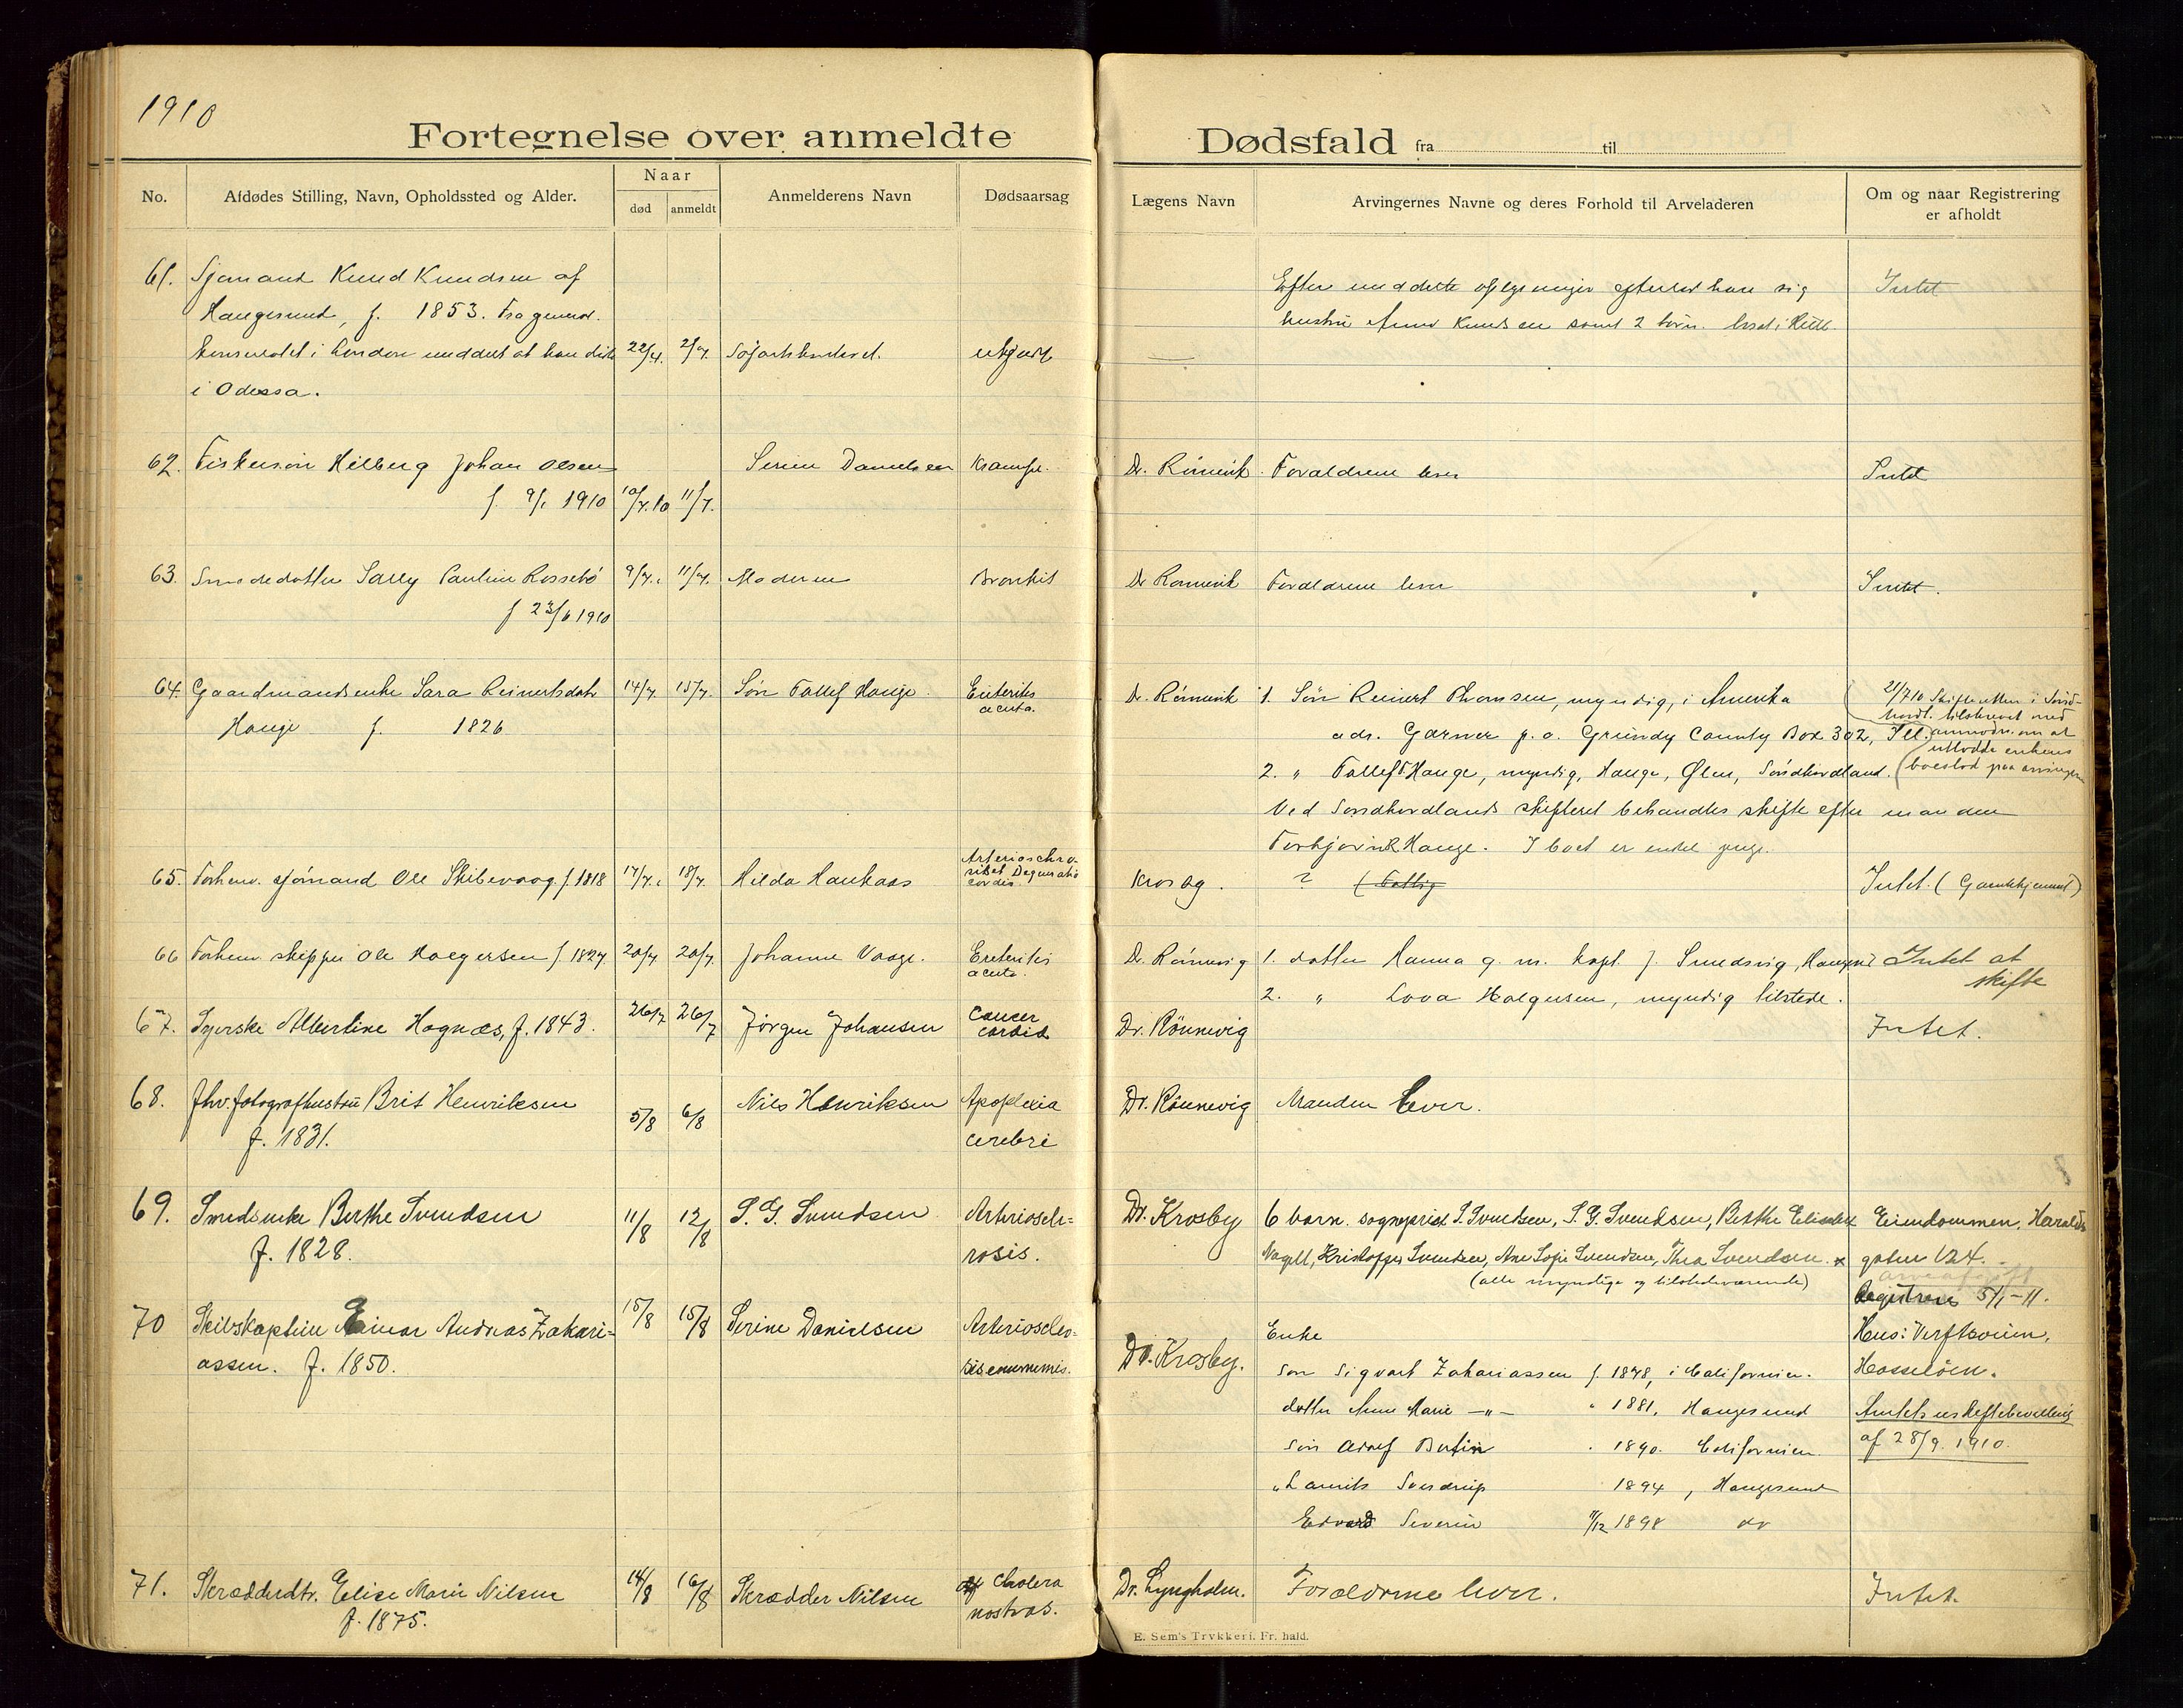 1910
Fortegnelse over anmeldte Dødsfald fra til
No.
Afdødes Stilling, Navn, Opholdssted og Alder.
Naar
død
anmeldt
Anmelderens Navn
Dødsaarsag
Lægens Navn
Arvingernes Navne og deres Forhold til Arveladeren
Om og naar Registrering
er afholdt
61. Sjømand Knud Knudsen af
Haugesund, f. 1853. Fra general.
konsulatet i London meddelt at han døde 22/4. 21/7.
i Odessa.
Efter meddelte oplysninger efterlod han sig
hustru Anna Knudsen samt 2 børn.
Intet
62. Fiskersøn Hilberg Johan Olsen Serine Danielsen Krampe. Dr. Rönnevik Forældrene lever Intet
f. 9/1 1910 10/7.10 11/7.
63. Smededatter Sally Pauline Rossebö 9/7. 11/7. Moderen Bronkit Dr Rönnevik Forældrene lever Intet.
f 23/6 1910
64. Gaardmandsenke Sara Reinertsdatr 14/7. 15/7. Søn Tollef Hauge. Enterites
acuta.
Hauge f. 1826
Dr. Rönnevik 1. Søn Reinert Thomsen, myndig, i Amerika
adr. Garner p.o. Grundy County Box 302, Ill.
2. " Tollef T Hauge, myndig, Hauge, Ølen, Søndhordland.
Ved Søndhordlands skifteret behandles skifte efter manden
Torbjørn Hauge. I boet er endel penge.
21/7 10 Skifteretten i Sönd-
hordl. tilskrevet med
anmodn. om at
utlodde enkens
boeslod paa arvingerne
65. Forhenv. sjömand Ole Skibevaag f. 1818 17/7. 18/7. Hilda Haukaas
Arterioschro-
cordis.
? (Fattig Intet. (Gamlehjemmet)
66 Forhenv. skipper Ole Holgersen f. 1827. 20/7 20/7. Johanne Vaage. Enteritis
acuta.
Dr. Rönnevig 1. datter Hanna g. m. kapt. J. Smedsvig, Haugesd Intet at
skifte
2. " Lova Holgersen, myndig tilstede.
67. Syerske Albertine Hognæs, f. 1843. 26/7 26/7 Jørgen Johansen Cancer
Dr. Rönnevig Intet.
68. Fhv. fotografhustru Brit Henriksen
f. 1831. 5/8 6/8 Nils Henriksen Apoplexia
cerebri
Dr. Rönnevig Manden lever.
69. Smedsenke Berthe Svendsen
f. 1828. 11/8 12/8 S. G. Svendsen Arterioscle-
rosis.
Dr. Krosby 6 barn. sogneprest S. Svendsen, S. G. Svendsen, Berthe Elisabet
Nagell, Kristoffer Svendsen, Ane Sofie Svendsen, Thea Svendsen.
(alle myndige og tilstedeværende)
Eiendommen, Haralds
gaten 124.
Registreres 5/1-11.
70 Skibskaptein Einar Andreas Zakari-
assen. f. 1850. 15/8 15/8 Serine Danielsen Arterioscle-
Dr. Krosby.
Enke
søn Sigvart Zakariassen f. 1878, i Californien.
datter Anne Marie —"— " 1881, Haugesund
søn Adolf Bertin " 1890. Californien.
" Lauritz Sverdrup 1894, Haugesund
Edvard Severin 11/12 1898 do
Hus: Verftveien,
Hasseløen.
Amtets uskiftebevilling
af 28/9. 1910.
71. Skrædderdtr. Elise Marie Nilsen
f. 1875. 14/8 16/8 Skrædder Nilsen Cholera
nostras.
Dr. Lyngholm. Forældrene lever. Intet.
E. Sem's Trykkeri. Fr. hald.